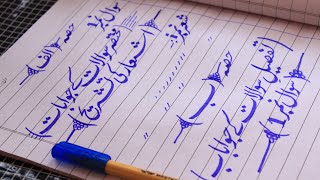 حصہ "الف"
سوال نمبر 1
مختصر سوالات کے جوابات
اشعار کی تشریح
شعر نمبر 1
حصہ (ب)
تفصیلی سوالات کے جوابات
سوال نمبر 1